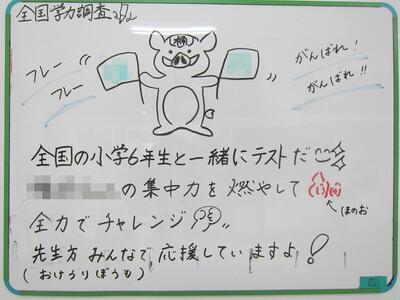 全国学力調査
フレー
フレー
がんばれ!
がんばれ!
全国の小学6年生と一緒にテストだ
の集中力を燃やして
(ほのお
全力でチャレンジ
先生方 みんなで 応援していますよ!
(おけうりぼうも)